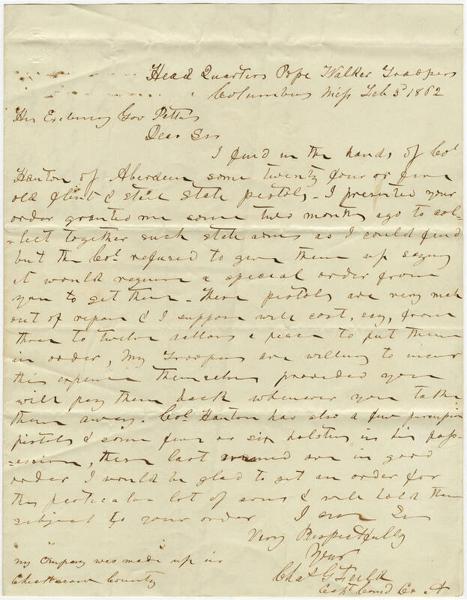 Head Quarters Pope Walker Troopers
Columbus Miss Feb 3d 1862
His Excellency Gov Pettus
Dear Sir
I find in the hands of Col
Hanton of Aberdeen some twenty four or five
old flint & steel state pistols - I presented your
order granted me some two months ago to col-
-lect together such state arms as I could find
but the Col. refused to give them up saying
it would require a special order from
you to get them. These pistols are very much
out of repair & I suppose will cost, say, from
three to twelve dollars a piece to put them
in order, My Troopers are willing to incur
this expense themselves provided you
will pay them back whenever you take
them away. Col. Hanton has also a few percussion
pistols & some five or six holsters in his poss-
-ession, these last named are in good
order I would be glad to get an order for
this particular lot of arms & will hold them
subject to your order I am Sir
Very Respectfully
Your
Chas G
Capt Comd Co. A
My Company was made up in
Chickasaw County